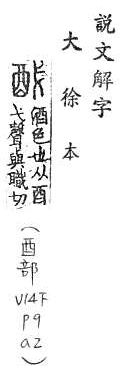 說文解字
大徐本
䣧 酒色也从酉
弋聲與職切
(酉部
V14下
P9
a2)